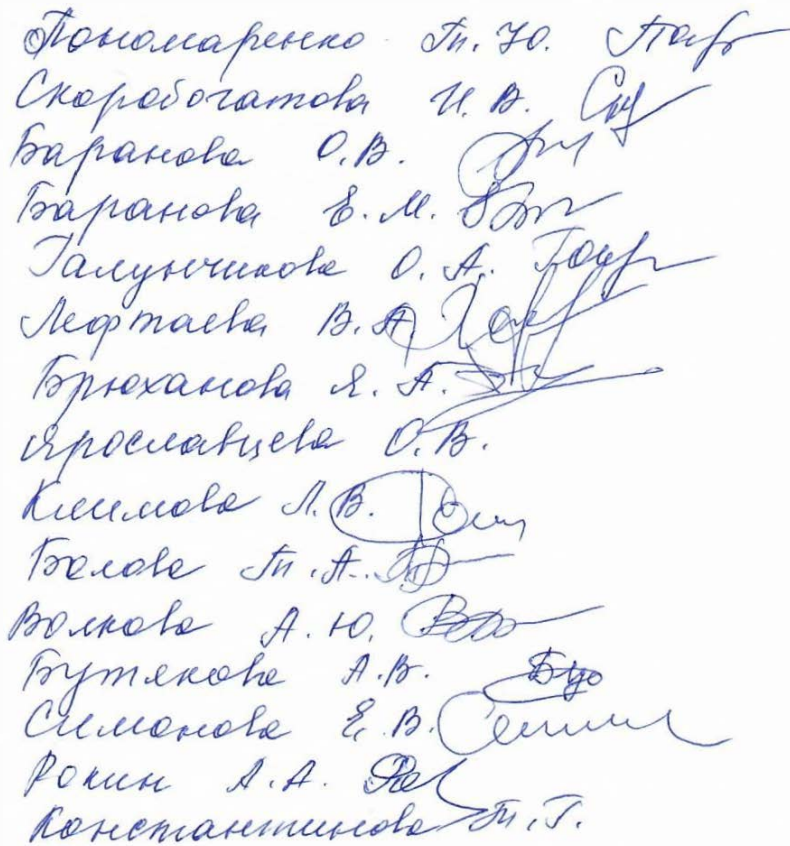 Пономаренко Т. Ю.
Скоробогатова И. В.
Баранова О. В.
Баранова Е. М.
Галунчикова О. А.
Лефтаева В. А.
Брюханова Я. А.
Ярославцева О. В.
Климова Л. В.
Белова Т. А.
Волкова А. Ю.
Бутякова А. В.
Симонова Е. В.
Рокин А. А.
Константинова Т. Г.